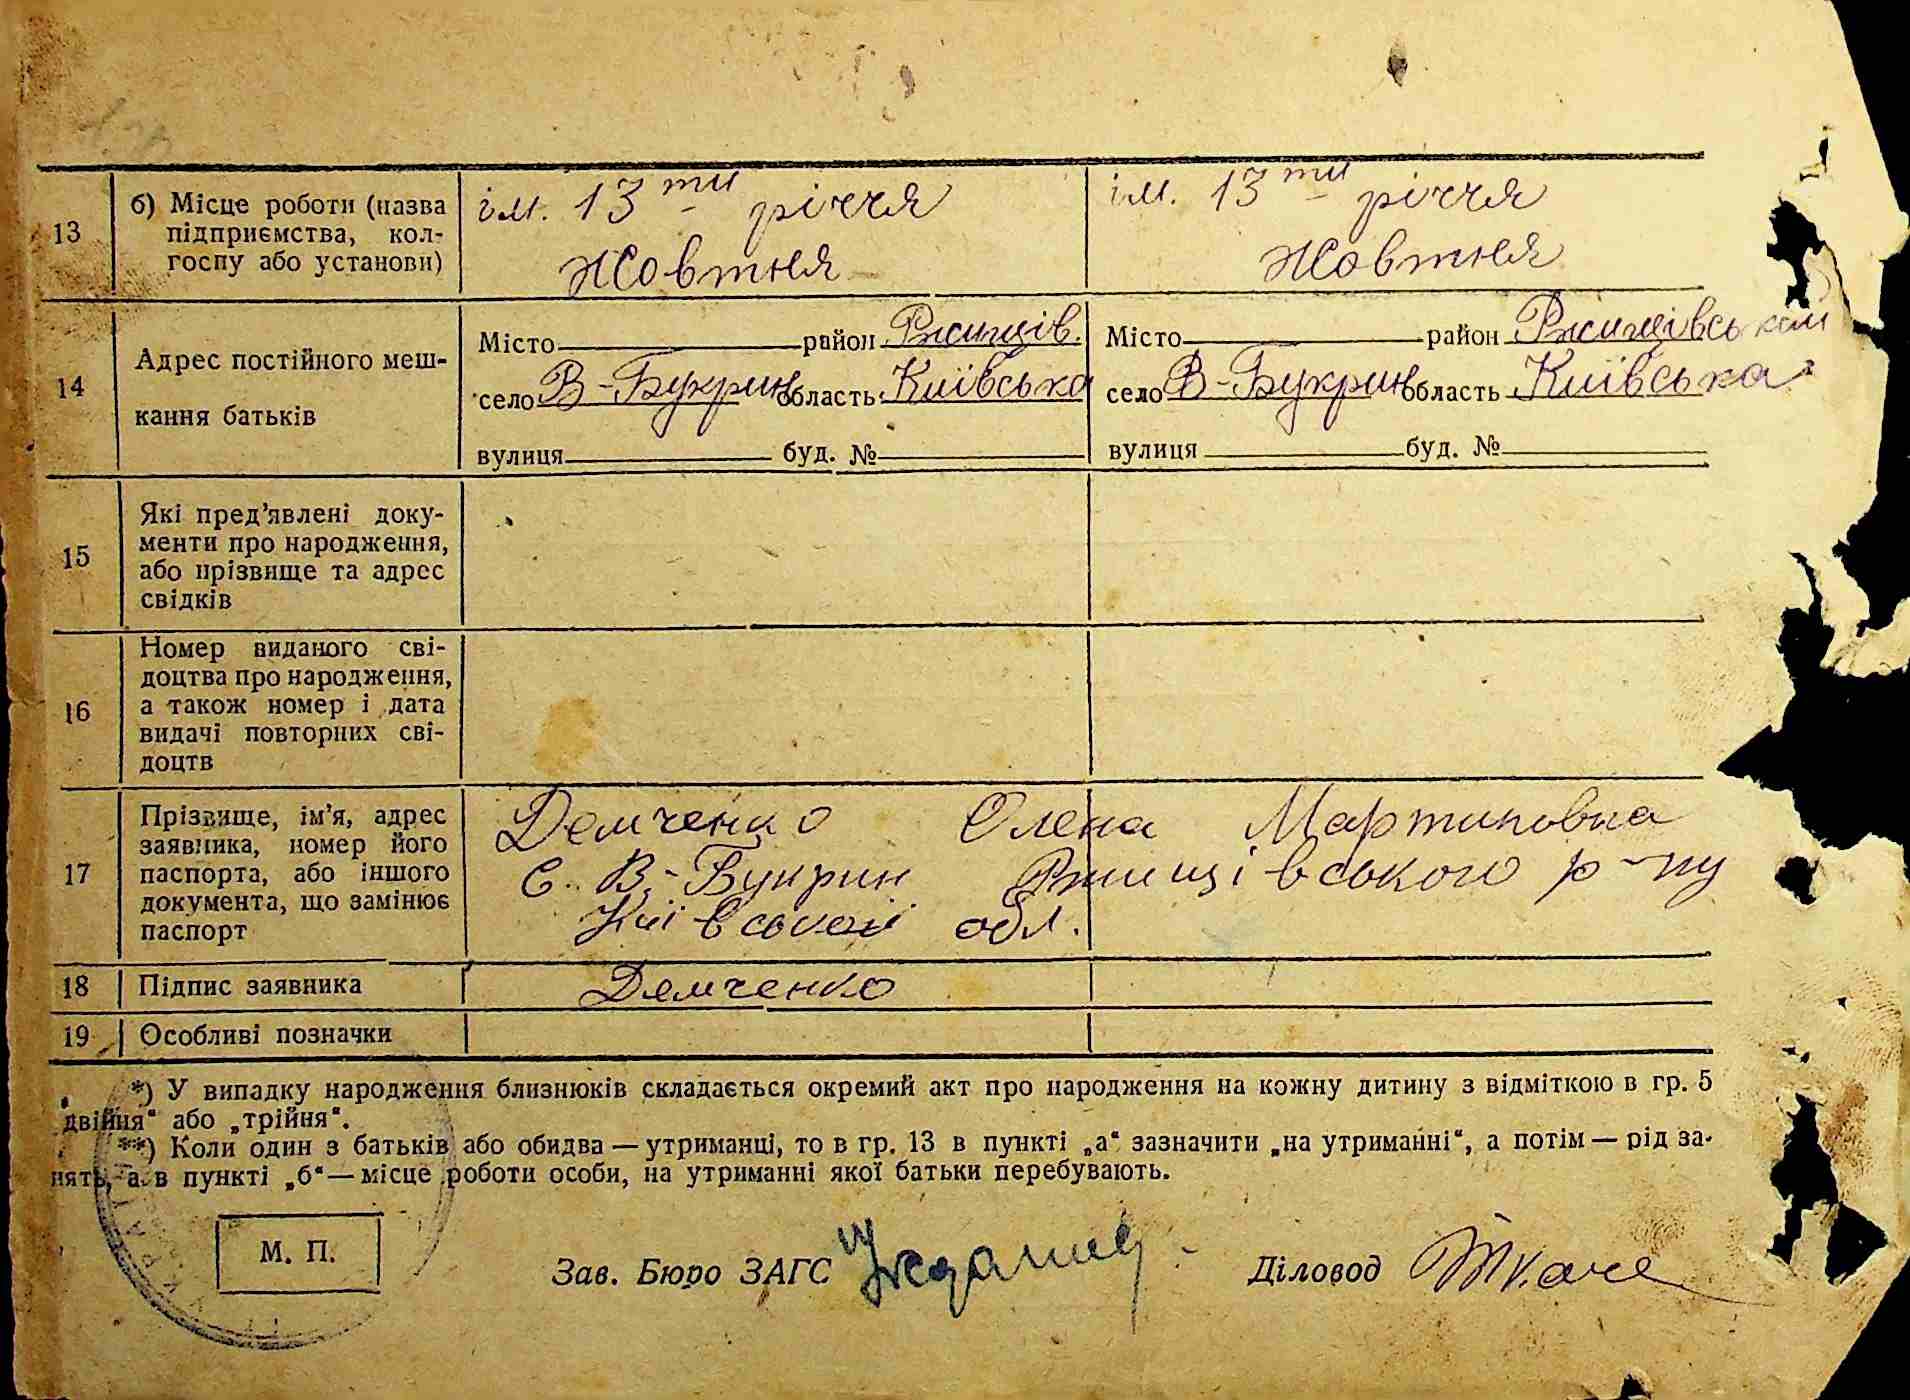 13
б) Місце роботи (назва
підприємства, кол-
госпу або установи)
ім. 13ти річчя
Жовтня
ім. 13ти річчя
Жовтня
14
Адрес постійного меш-
кання батьків
Місто район Ржищів.
село В-Букрин область Київська
вулиця буд. №
Місто район Ржищівський
село В-Букрин область Київська
вулиця буд. №
15
Які пред'явлені доку-
менти про народження,
або прізвище та адрес
свідків
16
Номер виданого сві-
доцтва про народження,
а також номер і дата
видачі повторних сві-
доцтв
17
Прізвище, ім'я, адрес
заявника, номер його
паспорта, або іншого
документа, що замінює
паспорт
Демченко Олена Мартиновна
с. В-Букрин Ржищівського р-ну
Київської обл.
18 Підпис заявника Демченко
19 Особливі позначки
*) У випадку народження близнюків складається окремий акт про народження на кожну дитину з відміткою в гр. 5
„двійня“ або „трійня“.
**) Коли один з батьків або обидва — утриманці, то в гр. 13 в пункті „а“ зазначити „на утриманні“, а потім — рід за-
нять, а в пункті „б“ — місце роботи особи, на утриманні якої батьки перебувають.
М. П.
Зав. Бюро ЗАГС
Діловод Ткаче